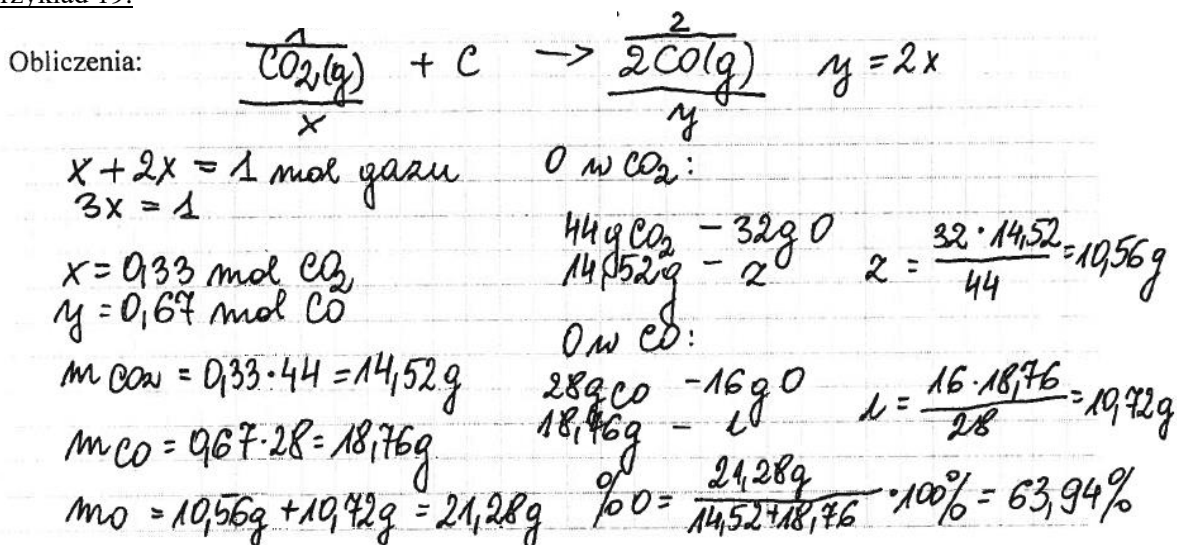 Przykład 19.
Obliczenia: 1 CO₂(g) + C → 2 2CO(g) y = 2x
x y
x + 2x = 1 mol gazu
3x = 1
x = 0,33 mol CO₂
y = 0,67 mol CO
m CO₂ = 0,33·44 = 14,52g
m CO = 0,67·28 = 18,76g
mO = 10,56g + 10,72g = 21,28g
O w CO₂:
44g CO₂ – 32g O
14,52g – z z = 32·14,52/44 = 10,56g
O w CO:
28g CO – 16g O
18,76g – t t = 16·18,76/28 = 10,72g
%O = 21,28g/14,52+18,76 ·100% = 63,94%